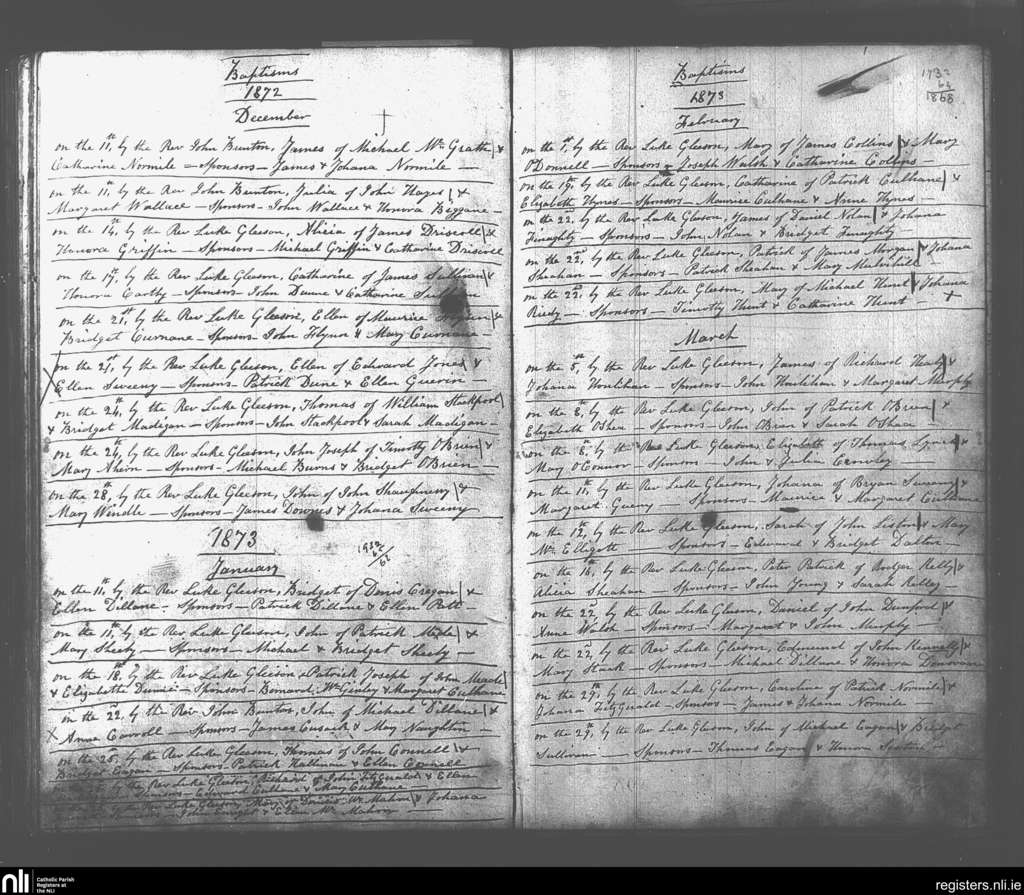 Baptisms
1872
December
on the 11th, by the Rev John Bunton, James of Michael Mc Grath &
Catharine Normile = Sponsors - James & Johana Normile -
on the 11, by the Rev John Bunton, Julia of John Hayes &
Margaret Wallace - Sponsors - John Wallace & Honora Biggane -
on the 14th, by the Rev Luke Gleeson, Alicia of James Driscoll &
Honora Griffin - Sponsors - Michael Griffin & Catharine Driscoll
on the 17th, by the Rev Luke Gleeson, Catharine of James Sullivan &
Honora Carthy - Sponsors - John Dunne & Catharine
on the 21st, by the Rev Luke Gleeson, Ellen of Maurice &
Bridget Curnane - Sponsors - John Flynn & Mary Curnane -
on the 21st, by the Rev Luke Gleeson, Ellen of Edward Jones &
Ellen Sweeny - Sponsors - Patrick Dune & Ellen Guerin -
on the 24th, by the Rev Luke Gleeson, Thomas of William Stackpool
& Bridget Madigan - Sponsors - John Stackpool & Sarah Madigan -
on the 24th, by the Rev Luke Gleeson, John Joseph of Timothy OBrien &
Mary Ahern - Sponsors - Michael Burns & Bridget OBrien -
on the 28th, by the Rev Luke Gleeson, John of John Shaughnessy &
Mary Windle - Sponsors - James Downes & Johana Sweeny
1873
January
on the 11th, by the Rev Luke Gleeson, Bridget of Denis Cregan &
Ellen Dillane - Sponsors - Patrick Dillane & Ellen
on the 11th, by the Rev Luke Gleeson, John of Patrick &
Mary Sheehy - Sponsors - Michael & Bridget Sheehy -
on the 18th, by the Rev Luke Gleeson, Patrick Joseph of John Meade
& Elizabeth - Sponsors - Bernard Mc Ginley & Margaret Culhane
on the 22, by the Rev John Bunton, John of Michael Dillane &
Anne Carroll - Sponsors - James Cusack & Mary Naughton -
on the 25th, by the Rev Luke Gleeson, Thomas of John Connell &
Bridget Eagan - Sponsors - Patrick & Ellen Connell
by the Rev Luke Gleeson, Richard of John FitzGerald & Ellen
Sponsors - Edward Culhane & Mary Culhane
by the Rev Luke Gleeson, Mary of Denis Mc Mahon & Johana
Sponsors - John Enright & Ellen Mc Mahon -
Baptisms
1873
February
on the 1st, by the Rev Luke Gleeson, Mary of James Collins & Mary
O'Donnell - Sponsors - Joseph Walsh & Catharine Collins -
on the 19th, by the Rev Luke Gleeson, Catharine of Patrick Culhane &
Elizabeth Hynes - Sponsors - Maurice Culhane & Anne Hynes -
on the 22nd, by the Rev Luke Gleeson, James of Daniel Nolan & Johana
Finaghty - Sponsors - John Nolan & Bridget Finaghty -
on the 22nd, by the Rev Luke Gleeson, Patrick of James Morgan & Johana
Sheahan - Sponsors - Patrick Sheahan & Mary Mulvihill -
on the 22nd, by the Rev Luke Gleeson, Mary of Michael Hunt & Johana
Riedy - Sponsors - Timothy Hunt & Catharine Hunt
March
on the 5th, by the Rev Luke Gleeson, James of Richard Healy &
Johana Houlihan - Sponsors - John Houlihan & Margaret Murphy
on the 8th, by the Rev Luke Gleeson, John of Patrick OBrien &
Elizabeth OShea - Sponsors - John OBrien & Sarah OShea -
on the 8th, by the Rev Luke Gleeson, Elizabeth of Thomas Lynch &
Mary O'Connor - Sponsors - John & Julia Crowley
on the 11th, by the Rev Luke Gleeson, Johana of Bryan Sweeny &
Margaret - Sponsors - Maurice & Margaret Culhane
on the 12th, by the Rev Luke Gleeson, Sarah of John Liston & Mary
Mc Elligott - Sponsors - Edward & Bridget Dalton -
on the 16th, by the Rev Luke Gleeson, Peter Patrick of Rodger Kelly &
Alicia Sheahan - Sponsors - John Young & Sarah Kelly -
on the 22nd, by the Rev Luke Gleeson, Daniel of John Dunford &
Anne Walsh - Sponsors - Margaret & John Murphy -
on the 22nd, by the Rev Luke Gleeson, Edmund of John Kennelly &
Mary Stack - Sponsors - Michael Dillane & Honora Donovan
on the 29th, by the Rev Luke Gleeson, Caroline of Patrick Normile &
Johana FitzGerald - Sponsors - James & Johana Normile -
on the 29th, by the Rev Luke Gleeson, John of Michael Eagan & Bridget
Sullivan - Sponsors - Thomas Eagan & Honora
nli
Catholic Parish
Registers at
the NLI
registers.nli.ie